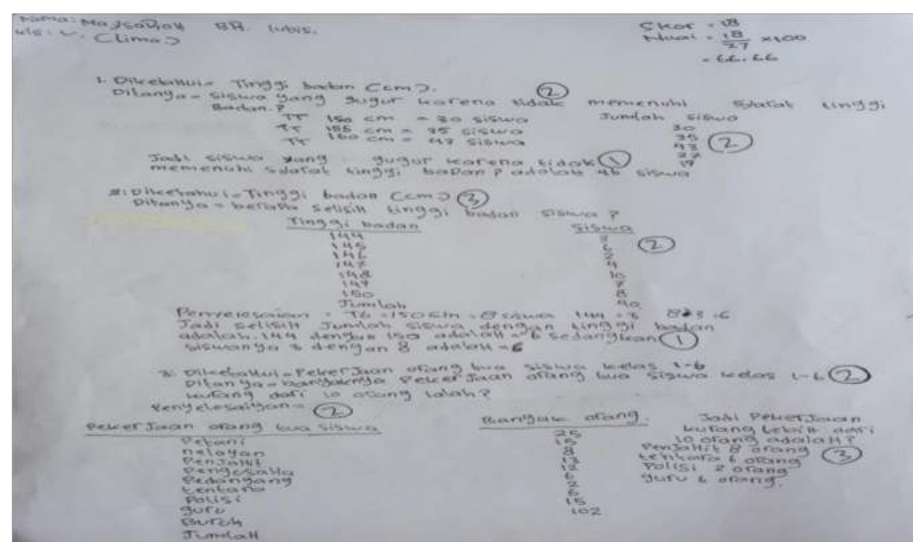 Nama: Maysaroh BR. lubis.
kls: V. (Lima)
Skor = 18
Nilai = 18/27 x100
= 66,66
1. Diketahui = Tinggi badan (cm).
Ditanya = siswa yang gugur karena tidak memenuhi syarat tinggi
Badan.?
TT 150 cm = 30 siswa
TT 155 cm = 35 siswa
TT 160 cm = 43 siswa
Jumlah siswa
30
35
43
17
2
2
Jadi siswa yang gugur karena tidak 1
memenuhi syarat tinggi baDan? adalah 46 siswa
2. Diketahui = Tinggi badan (cm) 3
Ditanya = berapa selisih tinggi badan siswa?
Tinggi badan Siswa
144
145
146
147
148
149
150
Jumlah
6
2
4
10
7
8
40
2
Penyelesaian = TB = 150 cm = 8 siswa 144 = 3 8-3 = 6
Jadi selisih Jumlah siswa dengan tinggi badan
adalah. 144 dengan 150 adalah = 6 sedangkan 1
siswanya 3 dengan 8 adalah = 6
3. Diketahui = PekerJaan orang tua siswa kelas 1-6
Ditanya = banyaknya PekerJaan orang tua siswa kelas 1-6 2
kurang dari 10 orang ialah?
Penyelesaiyan = 2
PekerJaan orang tua siswa
Petani
nelayan
PenJahit
Pengusaha
Pedangang
tentara
Polisi
guru
Buruh
Jumlah
Banyak orang.
25
15
8
13
12
6
2
6
15
102
Jadi PekerJaan
kurang lebih dari
10 orang adalah?
PenJahit 8 orang
tentara 6 orang 3
Polisi 2 orang
guru 6 orang.